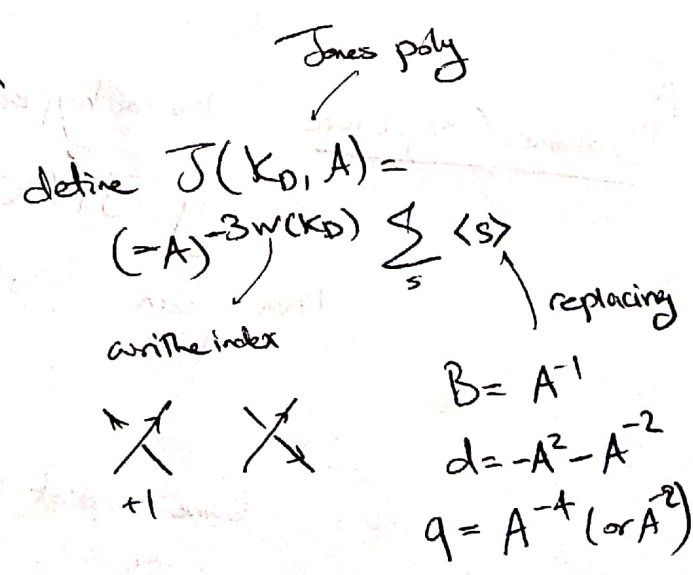 Jones poly
define J(K_D, A) =
(-A)^{-3w(K_D)} Σ_s <s>
writhe index
replacing
B = A^{-1}
d = -A^2 - A^{-2}
q = A^{-4} (or A^{-2})
+1